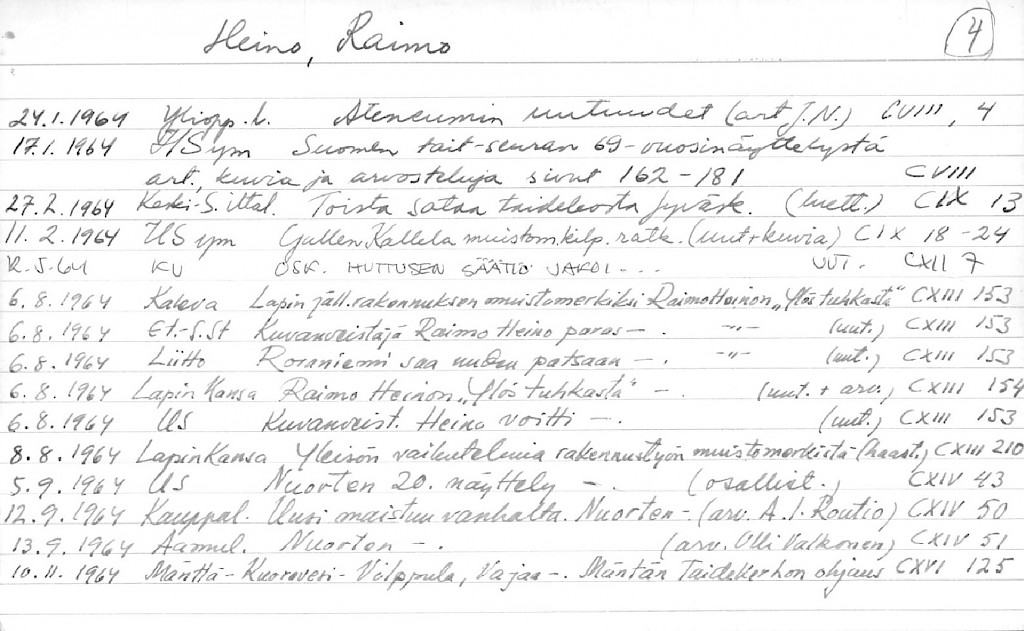 Heino, Raimo 4
24.1.1964 Yliopp.l. Ateneumin uutuudet (art J.N.) CVIII, 4
17.1.1964 HSym Suomen tait-seuran 69-vuosinäyttelystä
art., kuvia ja arvosteluja sivut 162-181 CVIII
27.2.1964 Keski-S. Toista sataa taideteosta Jyväsk. (luett.) CIX 13
11.2.1964 HSym Gallen-Kallela muistom.kilp. ratk. (uut+kuvia) CIX 18-24
12.5.64 KU OSK. HUTTUSEN SÄÄTIÖ JAKOI - .. UUT. CXII 7
6.8.1964 Kaleva Lapin jäll.rakennuksen muistomerkiksi Raimo Heinon „Ylös tuhkasta" CXIII 153
6.8.1964 Et.-S.St Kuvanveistäjä Raimo Heino paras - . -"- (uut.) CXIII 153
6.8.1964 Liitto Rovaniemi saa uuden patsaan - . -"- (uut.) CXIII 153
6.8.1964 Lapin Kansa Raimo Heinon „Ylös tuhkasta" - . (uut. + arv.) CXIII 154
6.8.1964 US Kuvanveist. Heino voitti - . (uut.) CXIII 153
8.8.1964 Lapin Kansa Yleisön vaikutelmia rakennustyön muistomerkistä (haast.) CXIII 210
5.9.1964 US Nuorten 20. näyttely - . (osallist.) CXIV 43
12.9.1964 Kauppal. Uusi maistuu vanhalta. Nuorten - (arv. A.I. Routio) CXIV 50
13.9.1964 Aamul. Nuorten - . (arv. Olli Valkonen) CXIV 51
10.11.1964 Mänttä-Kuorevesi-Vilppula, Vajaa - . Mäntän Taidekerhon ohjaus CXVI 125